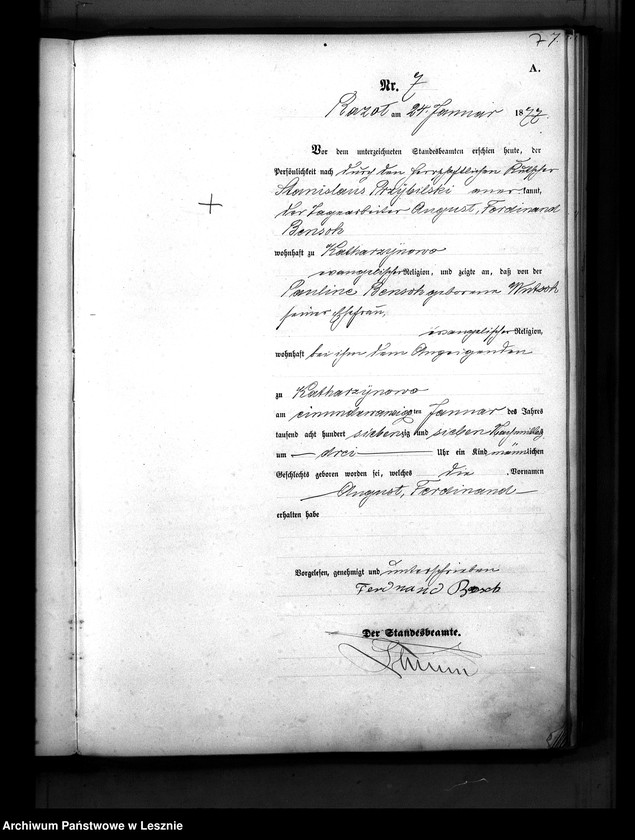 77.
A.
Nr. 7
Razot am 24. Januar 1877.
Vor dem unterzeichneten Standesbeamten erschien heute, der
Persönlichkeit nach durch den herrschaftlichen Kutscher
Stanislaus Przybilski aner kannt,
der Tagearbeiter August, Ferdinand
Bensch
wohnhaft zu Katharzynowo
evangelischer Religion, und zeigte an, daß von der
Pauline Bensch geborene
seiner Ehefrau,
evangelischer Religion,
wohnhaft bei ihm dem Anzeigenden
zu Katharzynowo
am einundzwanzigsten Januar des Jahres
tausend acht hundert siebenzig und sieben Nachmittag
um drei Uhr ein Kind männlichen
Geschlechts geboren worden sei, welches die Vornamen
August, Ferdinand
erhalten habe
Vorgelesen, genehmigt und unterschrieben
Ferdnand
Der Standesbeamte.
Archiwum Państwowe w Lesznie